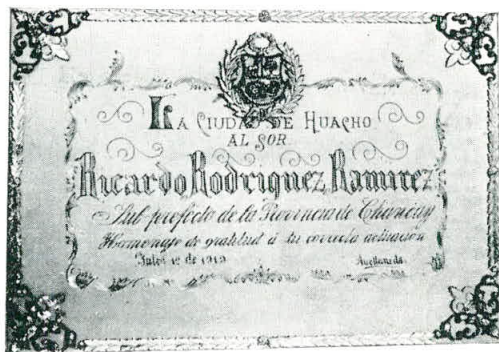 LA CIUDAD DE HUACHO
AL SOR
Ricardo Rodriguez Ramirez
Sub prefecto de la Provincia de Chancay
Homenage de gratitud á su correcta actuación
Julio 1º de 1919 Avellaneda